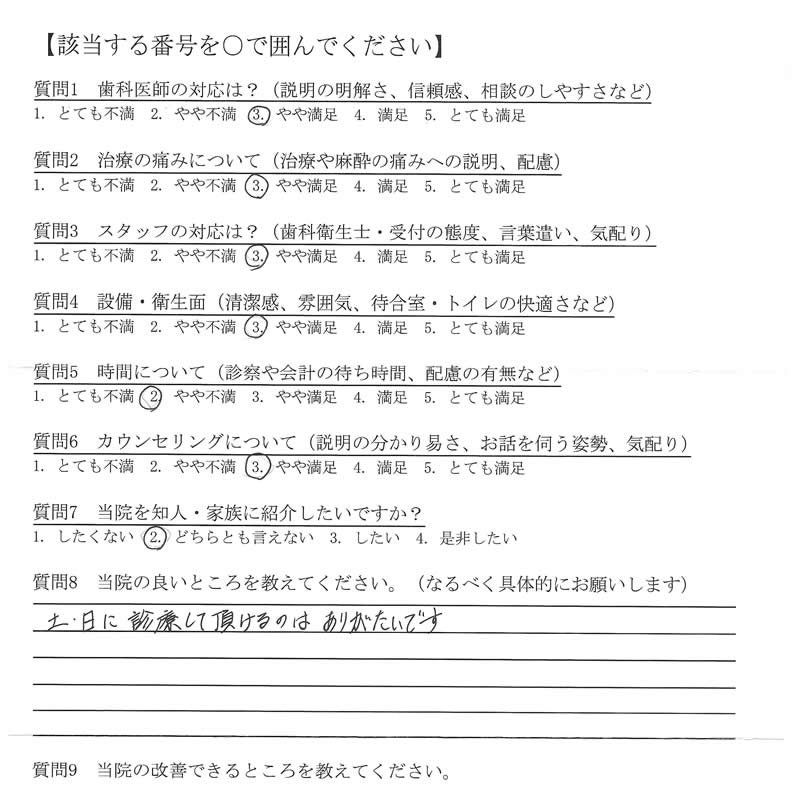 【該当する番号を〇で囲んでください】
質問1　歯科医師の対応は？（説明の明解さ、信頼感、相談のしやすさなど）
1. とても不満　2. やや不満　3. やや満足　4. 満足　5. とても満足
質問2　治療の痛みについて（治療や麻酔の痛みへの説明、配慮）
1. とても不満　2. やや不満　3. やや満足　4. 満足　5. とても満足
質問3　スタッフの対応は？（歯科衛生士・受付の態度、言葉遣い、気配り）
1. とても不満　2. やや不満　3. やや満足　4. 満足　5. とても満足
質問4　設備・衛生面（清潔感、雰囲気、待合室・トイレの快適さなど）
1. とても不満　2. やや不満　3. やや満足　4. 満足　5. とても満足
質問5　時間について（診察や会計の待ち時間、配慮の有無など）
1. とても不満　2　やや不満　3. やや満足　4. 満足　5. とても満足
質問6　カウンセリングについて（説明の分かり易さ、お話を伺う姿勢、気配り）
1. とても不満　2. やや不満　3. やや満足　4. 満足　5. とても満足
質問7　当院を知人・家族に紹介したいですか？
1. したくない　2. どちらとも言えない　3. したい　4. 是非したい
質問8　当院の良いところを教えてください。（なるべく具体的にお願いします）
土・日に 診療して頂けるのは ありがたいです
質問9　当院の改善できるところを教えてください。